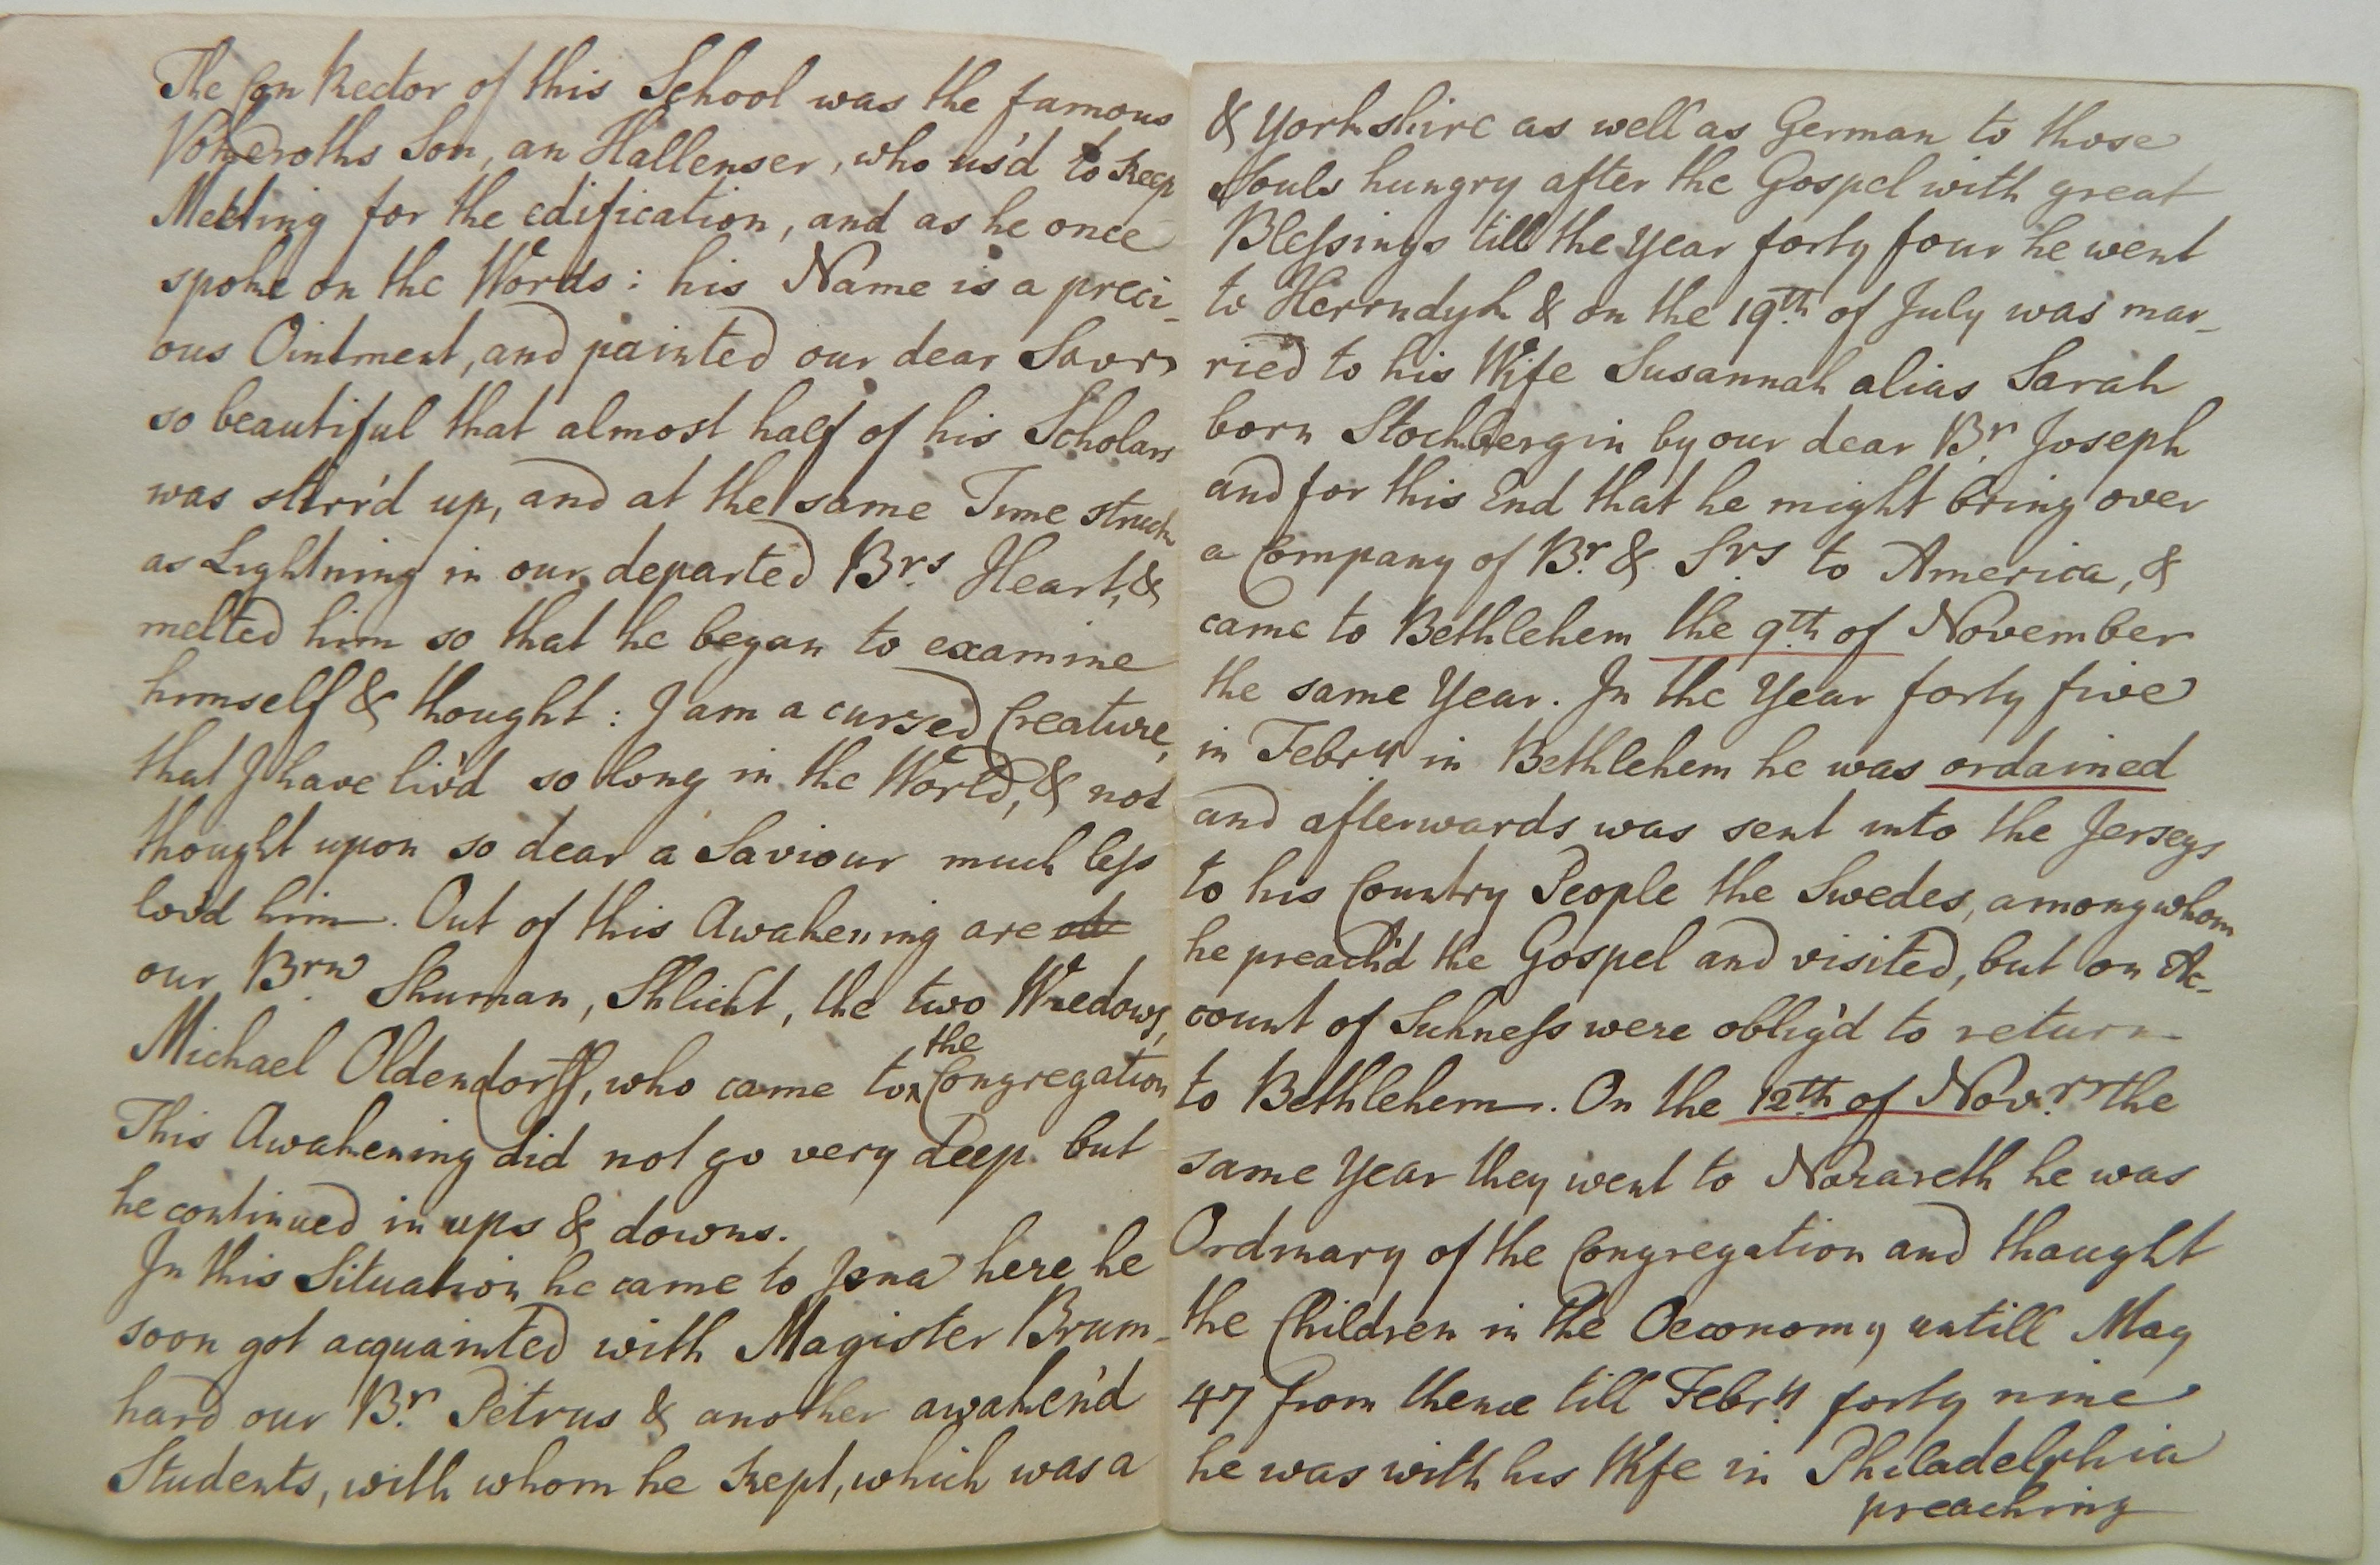 The Con Rector of this School was the famous
Vokeroths Son, an Hallenser, who us'd to keep
Meeting for the edification, and as he once
spoke on the Words: his Name is a preci-
ous Ointment, and painted our dear Savr
so beautiful that almost half of his Scholars
was stirr'd up, and at the same Time struck
as Lightning in our departed Brs Heart, &
melted him so that he began to examine
himself & thought: I am a cursed Creature,
that I have liv'd so long in the World, & not
thought upon so dear a Saviour much less
lov'd him. Out of this Awakening are
our Brn Shuman, Shlicht, the two Wredows,
Michael Oldendorff, who came to the Congregation
This Awakening did not go very deep but
he continued in ups & downs.
In this Situation he came to Jena here he
soon got acquainted with Magister Brum-
hard our Br. Petrus & another awaken'd
Students, with whom he kept, which was a
& Yorkshire as well as German to those
Souls hungry after the Gospel with great
Blessings till the Year forty four he went
to Herrndyk & on the 19th of July was mar-
ried to his Wife Susannah alias Sarah
born Stockbergin by our dear Br. Joseph
and for this End that he might bring over
a Company of Br. & Srs to America, &
came to Bethlehem the 9th of November
the same Year. In the Year forty five
in Febry in Bethlehem he was ordained
and afterwards was sent into the Jerseys
to his Country People the Swedes, among whom
he preach'd the Gospel and visited, but on Ac-
count of Sickness were oblig'd to return
to Bethlehem. On the 12th of Novr. the
same Year they went to Nazareth he was
Ordinary of the Congregation and thaught
the Children in the Oeconomy untill May
47 from thence till Febry forty nine
he was with his Wife in Philadelphia
preaching